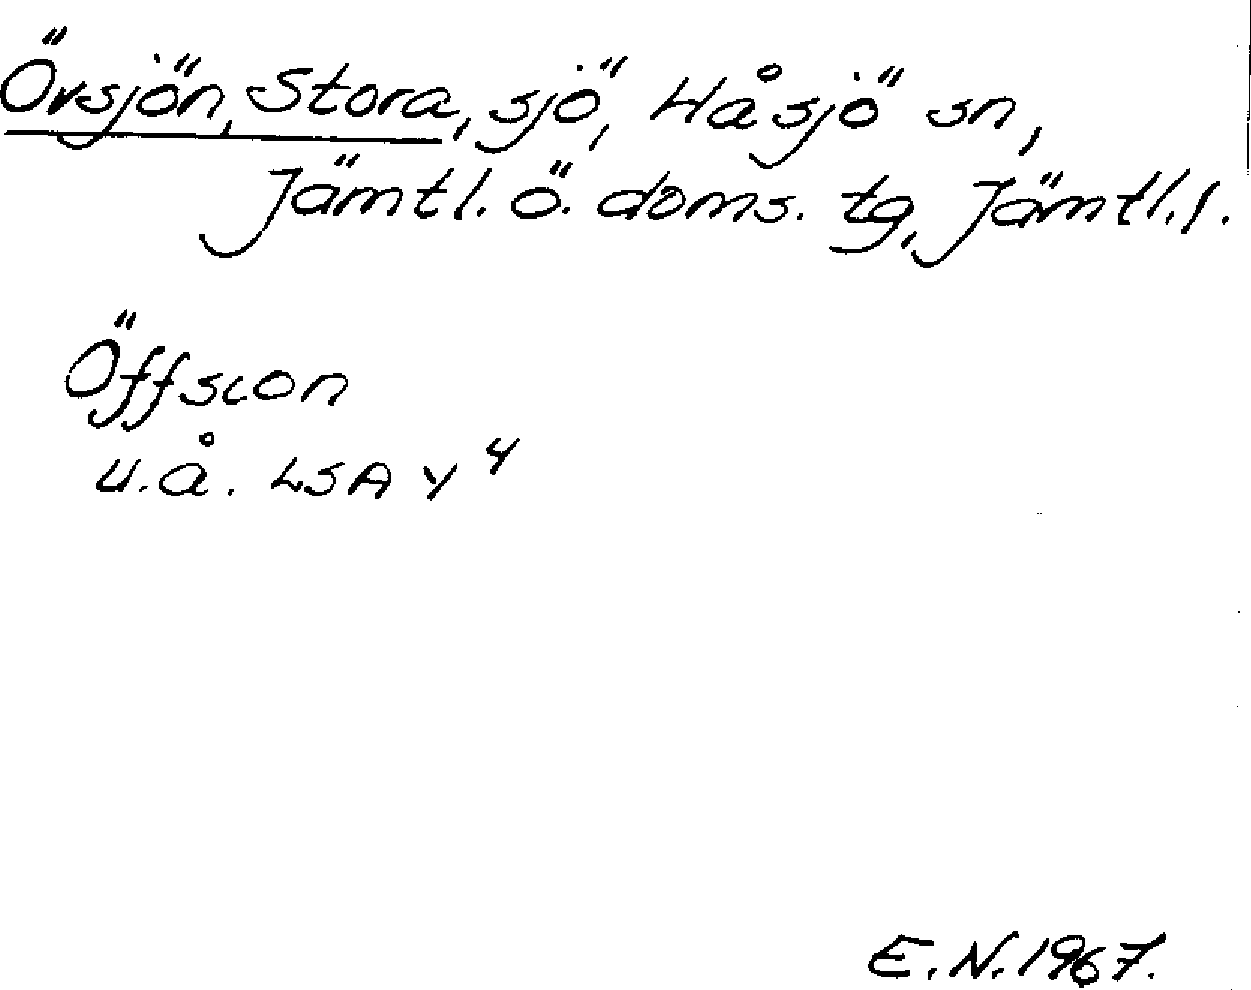 Övsjön, Stora, sjö, Håsjö sn,
Jämtl. ö. doms. tg, Jämtl. l.
Öffsion
u.å. LSA Y 4
E.N. 1967.